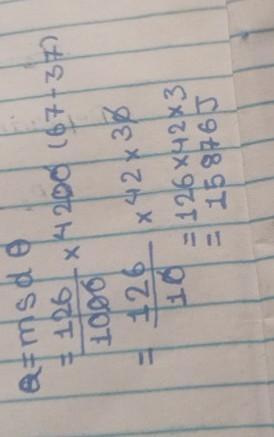 Q = m s d θ
= 126/1000 × 4200 (67-37)
= 126/10 × 42 × 30
= 126 × 42 × 3
= 15876 J